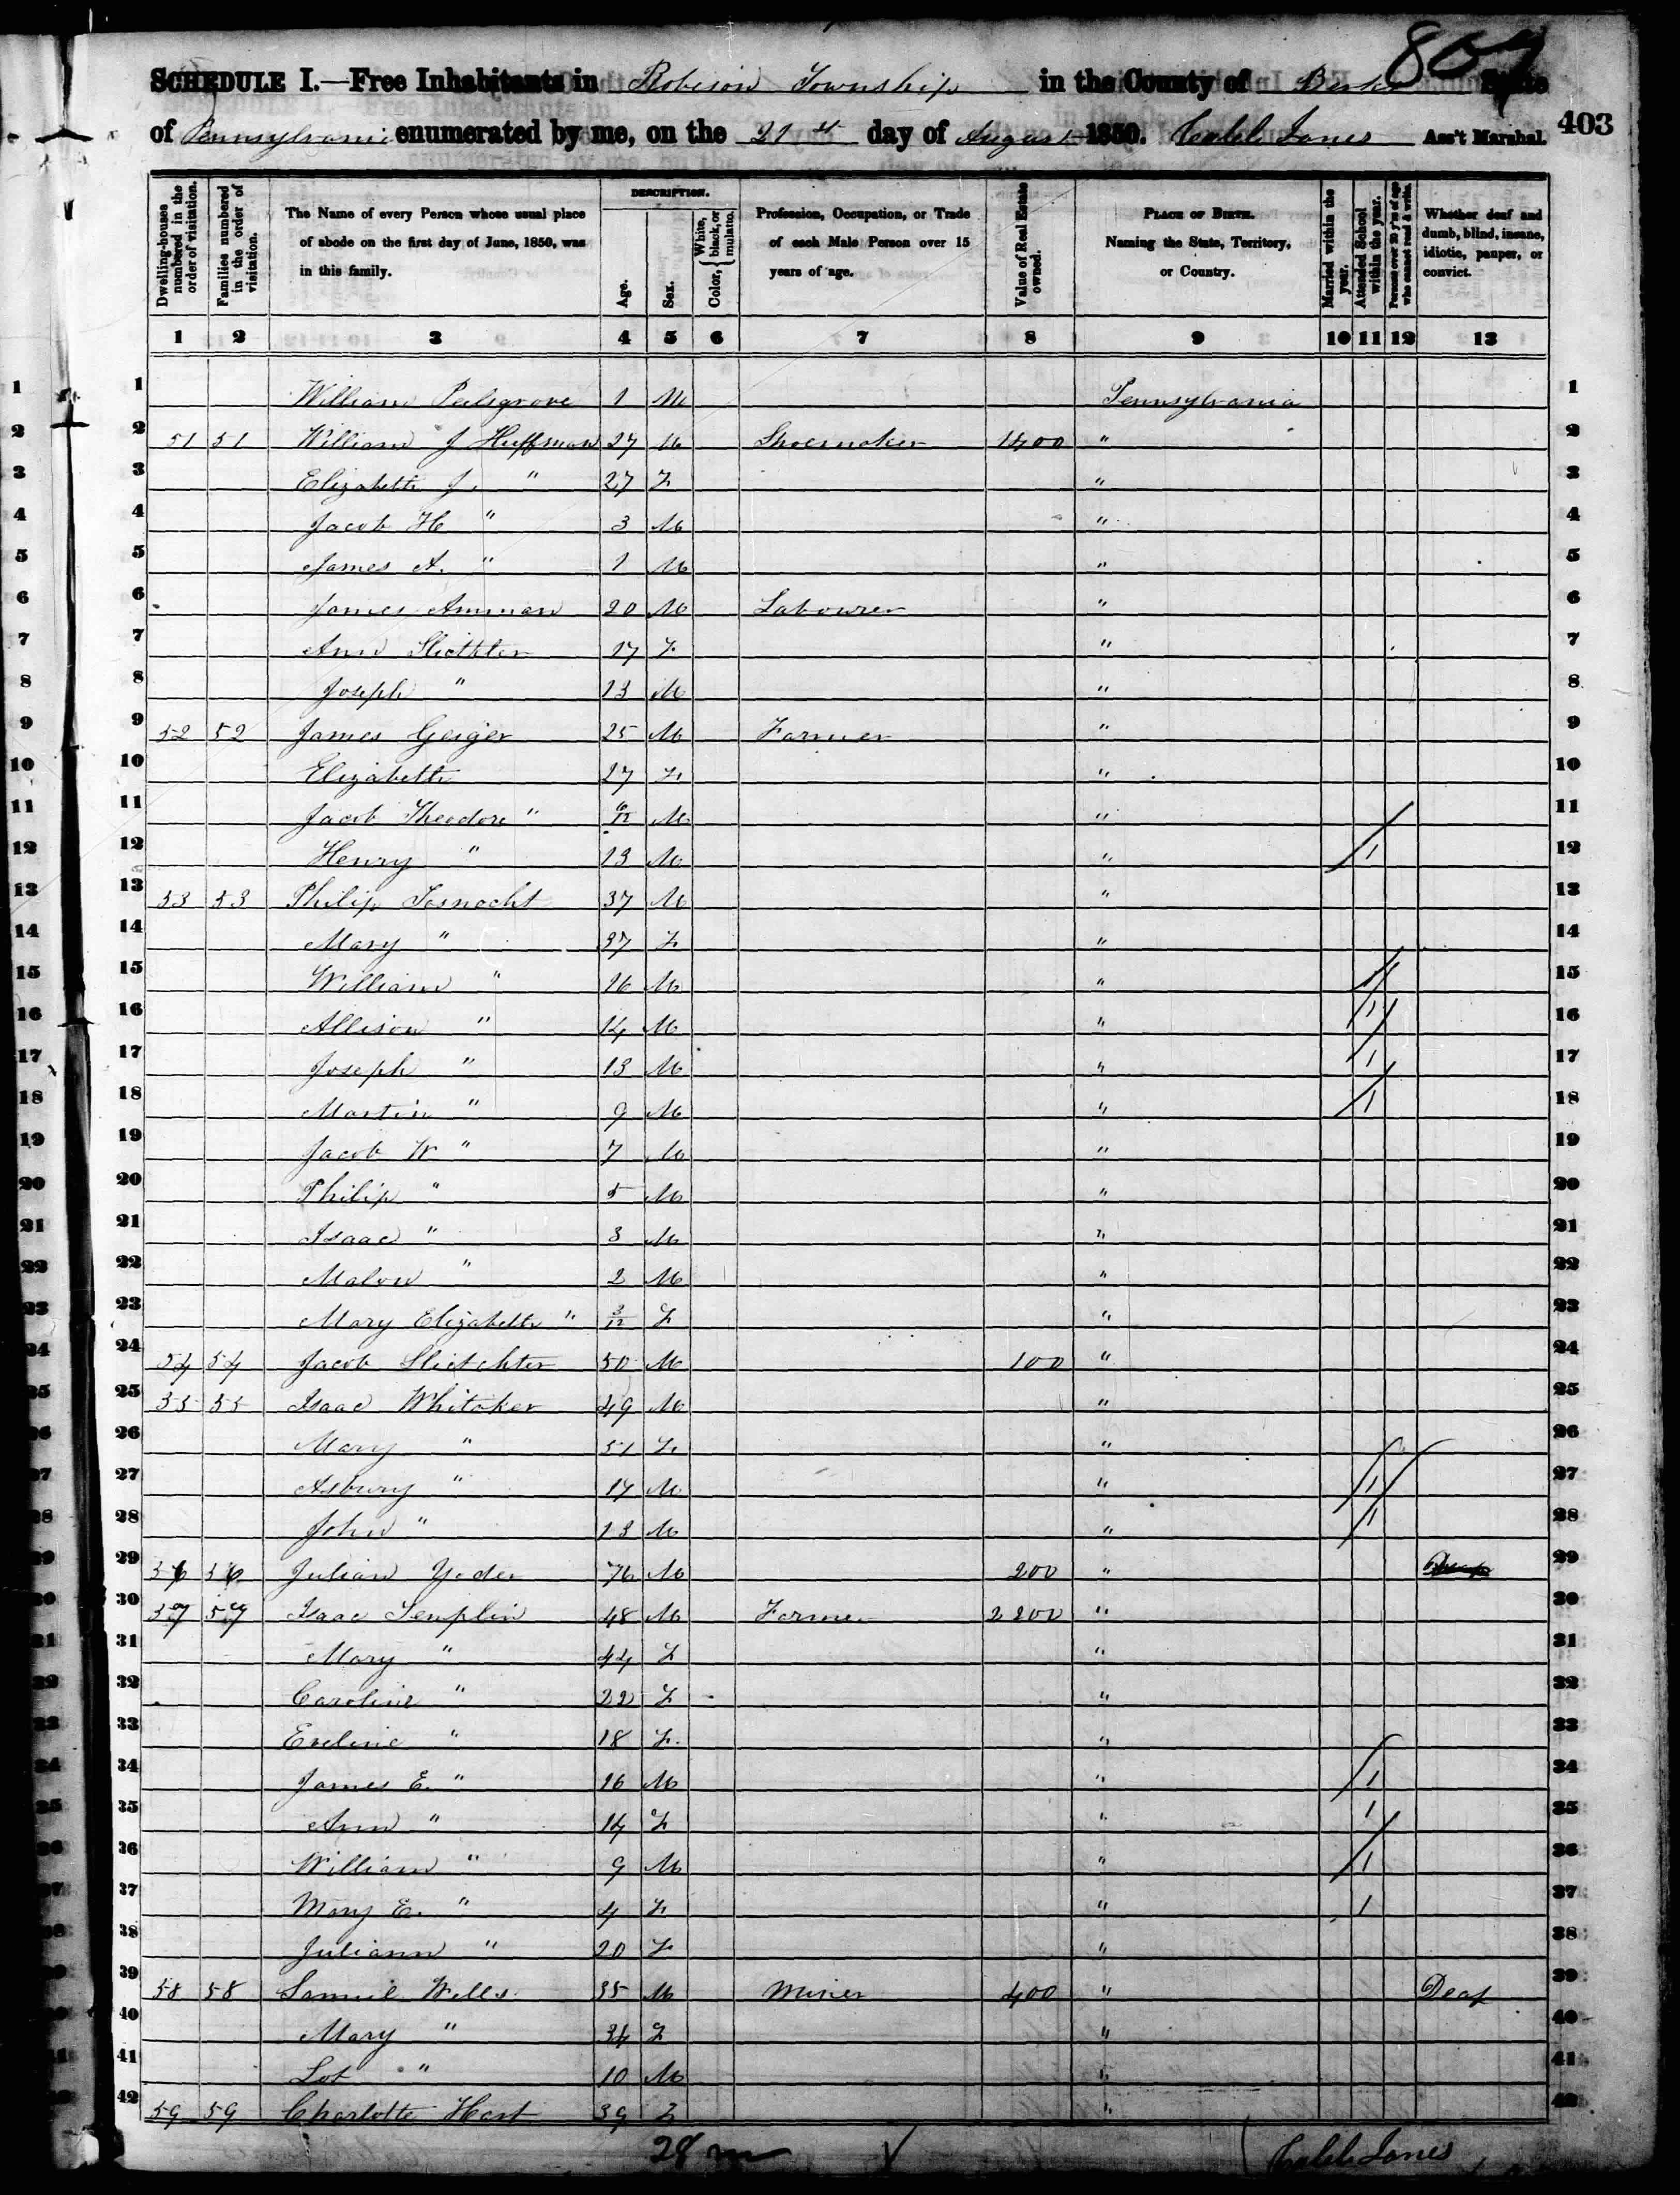 807
SCHEDULE I.—Free Inhabitants in Robeson Township in the County of Berks State
of Pennsylvania enumerated by me, on the 21st day of August 1850. Caleb Jones Ass't Marshal. 403
Dwelling-houses numbered in the order of visitation.
Families numbered in the order of visitation.
The Name of every Person whose usual place of abode on the first day of June, 1850, was in this family.
DESCRIPTION.
Age.
Sex.
Color, { White, black, or mulatto.
Profession, Occupation, or Trade of each Male Person over 15 years of age.
Value of Real Estate owned.
PLACE OF BIRTH. Naming the State, Territory, or Country.
Married within the year.
Attended School within the year.
Persons over 20 y'rs of age who cannot read & write.
Whether deaf and dumb, blind, insane, idiotic, pauper, or convict.
1 2 3 4 5 6 7 8 9 10 11 12 13
1 William Palsgrove 1 M Pennsylvania 1
2 51 51 William J Huffman 27 M Shoemaker 1400 " 2
3 Elizabeth J. " 27 F " 3
4 Jacob H " 3 M " 4
5 James A. " 1 M " 5
6 James Amman 20 M Labourer " 6
7 Ann 17 F " 7
8 Joseph " 13 M " 8
9 52 52 James Geiger 25 M Farmer " 9
10 Elizabeth 27 F " 10
11 Jacob Theodore " 6/12 M " 11
12 Henry " 13 M " 1 12
13 53 53 Philip Fosnocht 37 M " 13
14 Mary " 37 F " 14
15 William " 16 M " 1 15
16 Allison " 14 M " 1 16
17 Joseph " 13 M " 1 17
18 Martin " 9 M " 1 18
19 Jacob W " 7 M " 19
20 Philip " 5 M " 20
21 Isaac " 3 M " 21
22 Malon " 2 M " 22
23 Mary Elizabeth " 3/12 F " 23
24 54 54 Jacob Slietchter 50 M 100 " 24
25 55 55 Isaac Whitaker 49 M " 25
26 Mary " 51 F " 26
27 Asbury " 17 M " 1 27
28 John " 13 M " 1 28
29 56 56 Julian Yoder 76 M 200 " 29
30 57 57 Isaac Templin 48 M Farmer 2200 " 30
31 Mary " 44 F " 31
32 Caroline " 22 F " 32
33 Eveline " 18 F " 33
34 James E. " 16 M " 1 34
35 Ann " 14 F " 1 35
36 William " 9 M " 1 36
37 Mary E. " 4 F " 1 37
38 Juliann " 20 F " 38
39 58 58 Samuel Wells 35 M Miner 400 " Deaf 39
40 Mary " 34 F " 40
41 Lot " 10 M " 41
42 59 59 Charlotte Hart 39 F " 42
28 m Caleb Jones